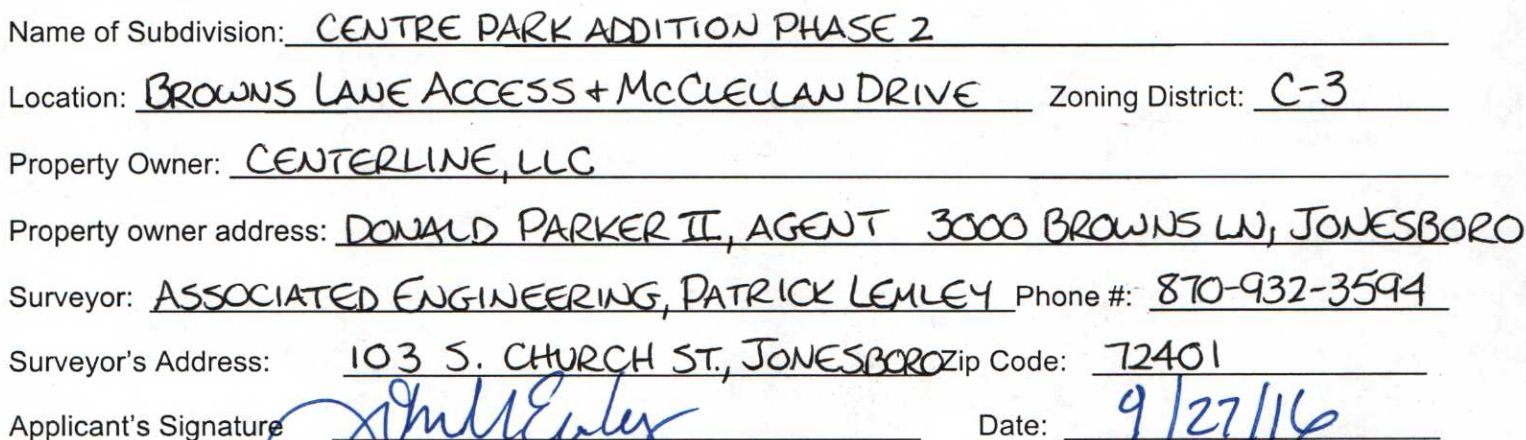 Name of Subdivision: CENTRE PARK ADDITION PHASE 2
Location: BROWNS LANE ACCESS + MCCLELLAN DRIVE Zoning District: C-3
Property Owner: CENTERLINE, LLC
Property owner address: DONALD PARKER II, AGENT 3000 BROWNS LN, JONESBORO
Surveyor: ASSOCIATED ENGINEERING, PATRICK LEMLEY Phone #: 870-932-3594
Surveyor's Address: 103 S. CHURCH ST., JONESBORO Zip Code: 72401
Applicant's Signature Date: 9/27/16